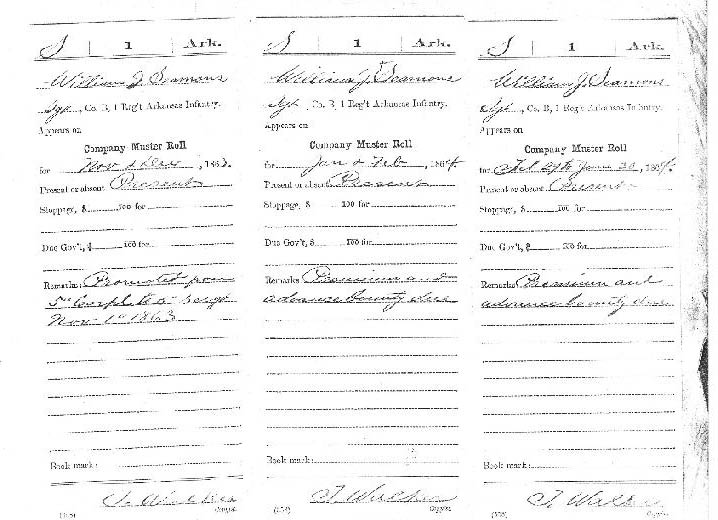 S | 1 | Ark.
William J. Seamons
Sgt, Co. B, 1 Reg't Arkansas Infantry.
Appears on
Company Muster Roll
for Nov & Dec, 1863.
Present or absent Present
Stoppage, $ 100 for
Due Gov't, $ 100 for
Remarks: Promoted from
5" Corpl to 5" Sergt
Nov 1" 1863
Book mark:
J. Walker
Copyist.
S | 1 | Ark.
William J. Seamons
Sgt, Co. B, 1 Reg't Arkansas Infantry.
Appears on
Company Muster Roll
for Jan & Feb, 1864
Present or absent Present
Stoppage, $ 100 for
Due Gov't, $ 100 for
Remarks: Premium and
advance bounty due
Book mark:
(358)
J. Walker
Copyist.
S | 1 | Ark.
William J. Seamons
Sgt, Co. B, 1 Reg't Arkansas Infantry.
Appears on
Company Muster Roll
for Feb 29 to June 30, 1864.
Present or absent Present
Stoppage, $ 100 for
Due Gov't, $ 100 for
Remarks: Premium and
advance bounty due
Book mark:
(358)
J. Walker
Copyist.